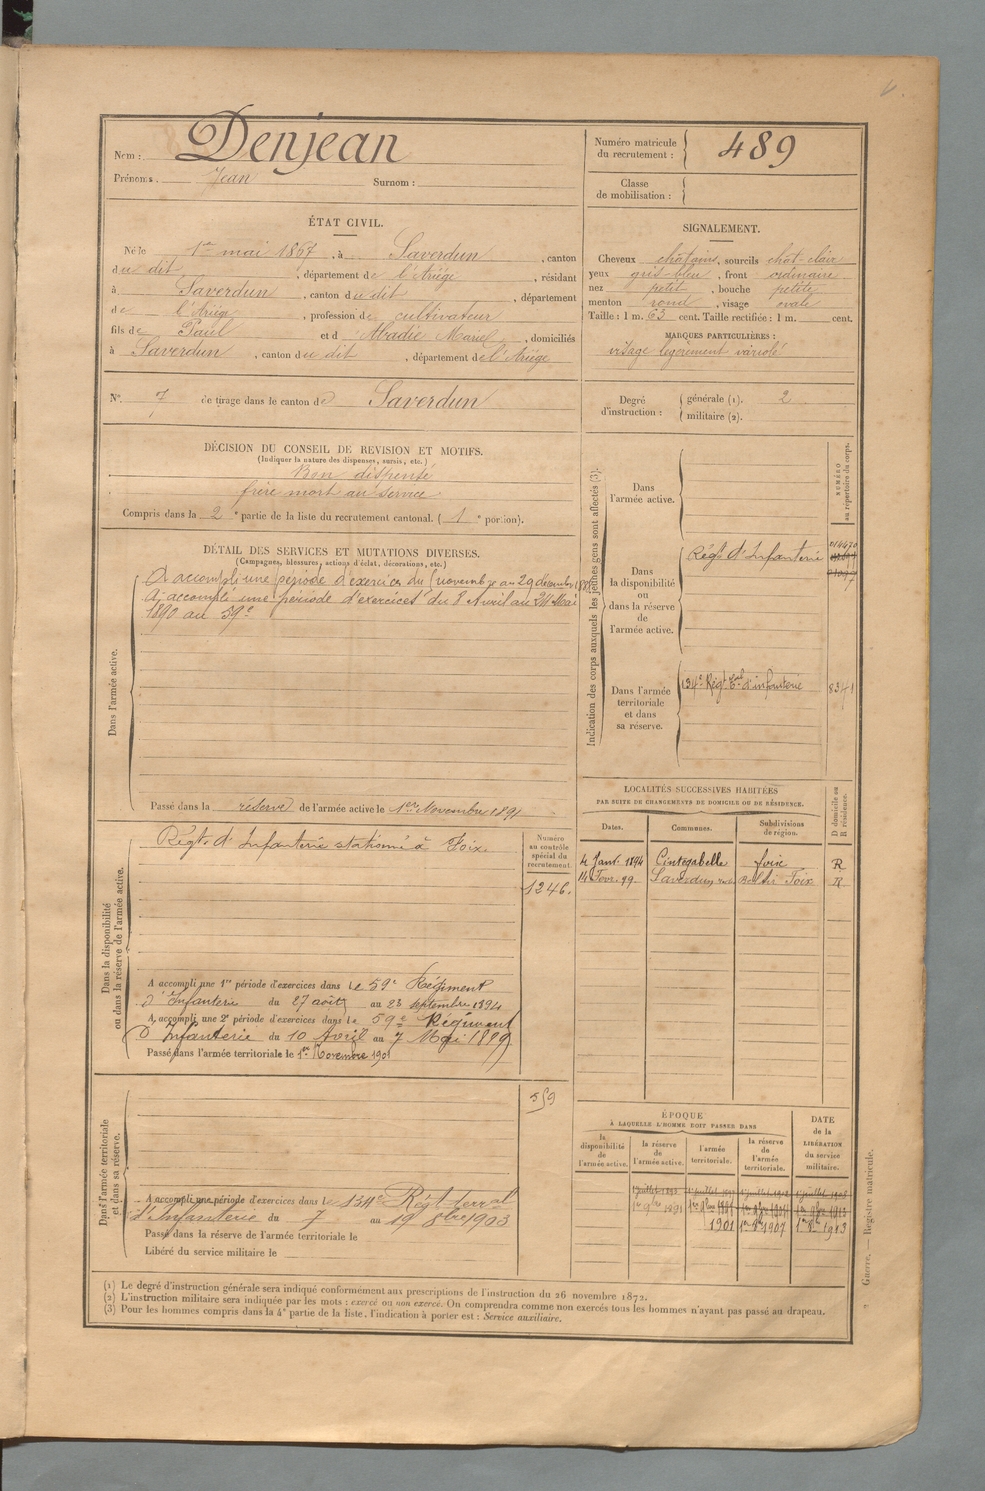 Nom : Denjean
Prénoms : Jean Surnom :
Numéro matricule du recrutement : 489
Classe de mobilisation :
ÉTAT CIVIL.
Né le 1er mai 1867, à Saverdun, canton
du dit, département de l'Ariège, résidant
à Saverdun, canton du dit, département
de l'Ariège, profession de cultivateur
fils de Paul et d Abadie Marie, domiciliés
à Saverdun, canton du dit, département de l'Ariège
N° 7 de tirage dans le canton de Saverdun
SIGNALEMENT.
Cheveux chatains, sourcils chat-clair
yeux gris-bleu, front ordinaire
nez petit, bouche petite
menton rond, visage ovale
Taille : 1 m. 63 cent. Taille rectifiée : 1 m. cent.
MARQUES PARTICULIÈRES :
visage légèrement variolé
Degré d'instruction : générale (1). 2
militaire (2).
DÉCISION DU CONSEIL DE REVISION ET MOTIFS.
(Indiquer la nature des dispenses, sursis, etc.)
Bon dispensé
frère mort au service
Compris dans la 2e partie de la liste du recrutement cantonal. (1e portion).
DÉTAIL DES SERVICES ET MUTATIONS DIVERSES.
(Campagnes, blessures, actions d'éclat, décorations, etc.)
Dans l'armée active.
A accompli une période d'exercices du novembre au 29 décembre
A accompli une période d'exercices du 8 Avril au Mai
1890 au 59e
Passé dans la réserve de l'armée active le 1er Novembre 1891
Dans la disponibilité ou dans la réserve de l'armée active.
Régt. d'Infanterie stationné à Foix
Numéro au contrôle spécial du recrutement
1246.
A accompli une 1re période d'exercices dans le 59e Régiment
d'Infanterie du 27 août au 23 septembre 1894
A accompli une 2e période d'exercices dans le 59e Régiment
d'Infanterie du 10 Avril au 7 Mai 1899
Passé dans l'armée territoriale le 1er Novembre 1901
Dans l'armée territoriale et dans sa réserve.
559
A accompli une période d'exercices dans le 134e Régt terral
d'Infanterie du 7 au 19 8bre 1903
Passé dans la réserve de l'armée territoriale le
Libéré du service militaire le
Indication des corps auxquels les jeunes gens sont affectés (3).
NUMÉRO au répertoire du corps.
Dans l'armée active.
Dans la disponibilité ou dans la réserve de l'armée active.
Régt d'Infanterie
Dans l'armée territoriale et dans sa réserve.
134e Régt Terral d'infanterie 8341
LOCALITÉS SUCCESSIVES HABITÉES
PAR SUITE DE CHANGEMENTS DE DOMICILE OU DE RÉSIDENCE.
Dates. Communes. Subdivisions de région. D domicile ou R résidence.
4 Janv. 1894 Cintegabelle Foix R
14 Fevr. 99. Saverdun Foix R
ÉPOQUE
À LAQUELLE L'HOMME DOIT PASSER DANS
la disponibilité de l'armée active. la réserve de l'armée active. l'armée territoriale. la réserve de l'armée territoriale. DATE de la LIBÉRATION du service militaire.
1901 1907 1913
Guerre. — Registre matricule.
(1) Le degré d'instruction générale sera indiqué conformément aux prescriptions de l'instruction du 26 novembre 1872.
(2) L'instruction militaire sera indiquée par les mots : exercé ou non exercé. On comprendra comme non exercés tous les hommes n'ayant pas passé au drapeau.
(3) Pour les hommes compris dans la 4e partie de la liste, l'indication à porter est : Service auxiliaire.